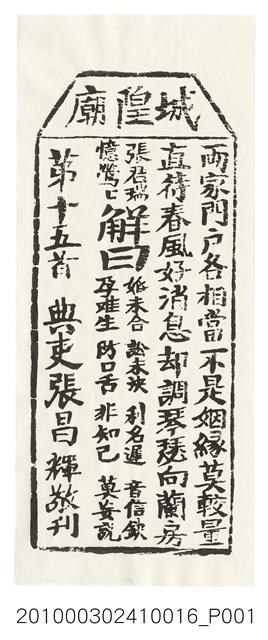 城隍廟
兩家門户各相當不是姻緣莫較量
直待春風好消息却調琴瑟向蘭房
張君瑞憶鶯鶯
解曰
婚未合訟未決利名遲音信欽
孕難生防口舌非知己莫妄説
第十五首典吏張昌輝敬刊
201000302410016_P001